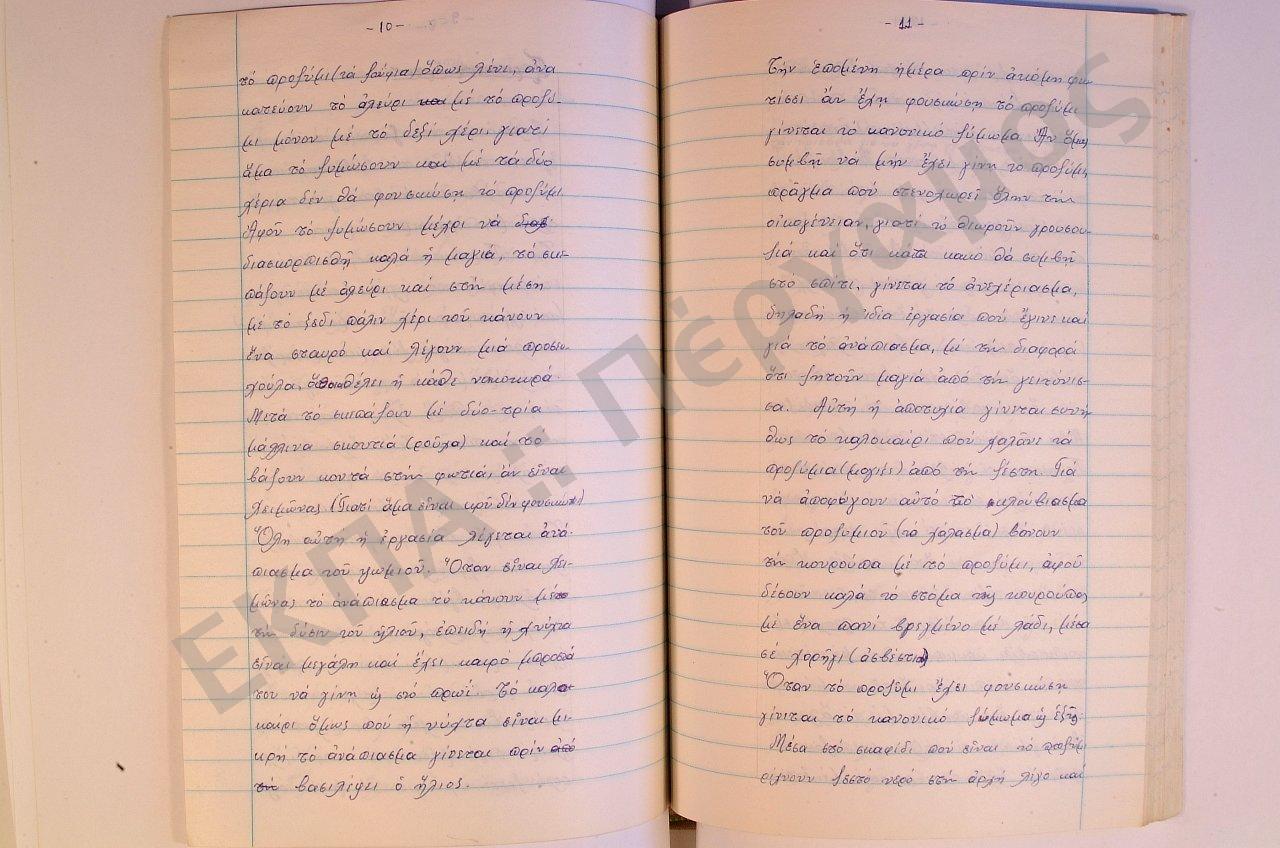 -10-
τό προζύμι (τά ζούφια) ὅπως λένε, ἀνα
κατεύουν τό ἀλεύρι και μέ τό προζύ-
μι μόνον μέ τό δεξί χέρι, γιατί
ἅμα τό ζυμώσουν καί μέ τά δύο
χέρια δέν θά φουσκώση τό προζύμι.
Ἀφοῦ τό ζυμώσουν μέχρι νά
διασκορπισθῆ καλά ἡ μαγιά, τό σκε-
πάζουν μέ ἀλεύρι καί στήν μέση
μέ τό δεξί πάλιν χέρι τοῦ κάνουν
ἕνα σταυρό καί λέγουν μιά προσευ-
χούλα, θέλει ἡ κάθε νοικοκυρά.
Μετά τό σκεπάζουν μέ δύο-τρία
μάλλινα σκουτιά (ροῦχα) καί το
βάζουν κοντά στήν φωτιά, ἄν εἶναι
χειμῶνας (Γιατί ἅμα εἶναι κρῦο δέν φουσκώνει)
Ὅλη αὐτή ἡ ἐργασία λέγεται ἀνά-
πιασμα τοῦ ψωμιοῦ. Ὅταν εἶναι χει-
μῶνας το ἀνάπιασμα τό κάνουν μετα
τήν δύσιν τοῦ ἡλιοῦ, ἐπειδή ἡ νύχτα
εἶναι μεγάλη καί ἔχει καιρό μπροστά
του νά γίνη ὡς στό πρωΐ. Τό καλο-
καίρι ὅμως πού ἡ νύχτα εἶναι μι-
κρή τό ἀνάπιασμα γίνεται πρίν ἀπό
τήν βασιλέψει ὁ ἥλιος.
-11-
Τήν ἑπομένη ἡμέρα πρίν ἀκόμη φω
τίσει ἄν ἔχη φουσκώση τό προζύμι
γίνεται τό κανονικό ζύμωμα. Ἄν ὅμως
συμβῆ νά μήν ἔχει γίνη το προζύμι,
πρᾶγμα πού στενοχωρεῖ ὅλην τήν
οἰκογένειαν, γιατί τό θεωροῦν γρουσου-
ζιά καί ὅτι κατι κακό θά συμβῆ
στό σπίτι, γίνεται τό ἀνεχέριασμα,
δηλαδή ἡ ἴδια ἐργασία πού ἔγινε καί
γιά τό ἀνάπιασμα, μέ τήν διαφορά
ὅτι ζητοῦν μαγιά ἀπό τήν γειτόνισ-
σα. Αὐτή ἡ ἀποτυχία γίνεται συνή
θως τό καλοκαίρι πού χαλᾶνε τά
προζύμια (μαγιές) ἀπό τήν ζέστη. Γιά
νά ἀποφύγουν αὐτό τό κλούβιασμα
τοῦ προζυμιοῦ (τό χάλασμα) βάνουν
τήν κουρούπα μέ τό προζύμι, ἀφοῦ
δέσουν καλά τό στόμα τῆς κουρούπας
μέ ἕνα πανί βρεγμένο μέ λάδι, μέσα
σέ χορῆγι (ἀσβέστια)
Ὅταν τό προζύμι ἔχει φουσκώση
γίνεται τό κανονικό ζύμωμα ὡς ἑξῆς:
Μέσα στό σκαφίδι πού εἶναι τό προζύμι
ρίχνουν ζεστό νερό στήν ἀρχή λίγο καί
ΕΚΠΑ :: Πέργαμος